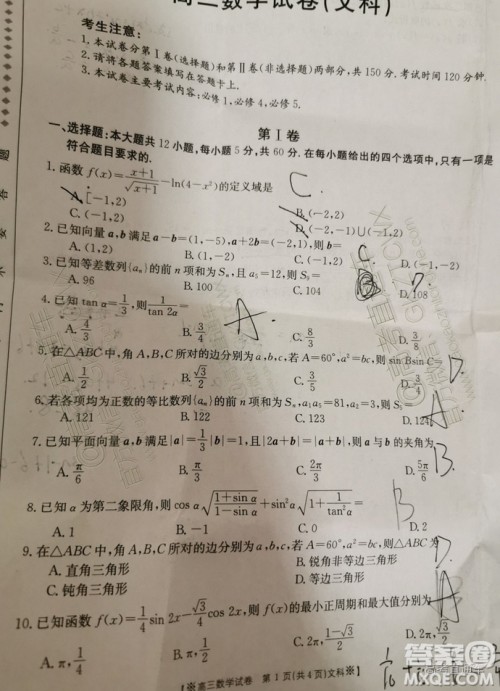 高三数学试卷(文科)
考生注意:
1. 本试卷分第Ⅰ卷(选择题)和第Ⅱ卷(非选择题)两部分,共 150 分. 考试时间 120 分钟.
2. 请将各题答案填写在答题卡上.
3. 本试卷主要考试内容:必修 1,必修 4,必修 5.
第Ⅰ卷
一、选择题:本大题共 12 小题,每小题 5 分,共 60 分. 在每小题给出的四个选项中,只有一项是
符合题目要求的.
1. 函数 f(x)=(x+1)/√(x+1)-ln(4-x²)的定义域是 C.
A. [-1,2) B. (-2,2)
C. (-1,2) D. (-2,-1)∪(-1,2)
2. 已知向量 a,b 满足 a-b=(1,-5),a+2b=(-2,1),则 b= C
A. (1,2) B. (1,-2) C. (-1,2) D. (-1,-2)
3. 已知等差数列{aₙ}的前 n 项和为 Sₙ,且 a₃=12,则 D.
A. 96 B. 100 C. 104 D. 108
4. 已知 tan α=1/3,则 1/tan 2α= A.
A. 4/3 B. 3/4 C. 8/3 D. 3/8
5. 在△ABC 中,角 A,B,C 所对的边分别为 a,b,c,若 A=60°,a²=bc,则 sin Bsin C= D.
A. 1/2 B. √3/2 D. 3/4
6. 若各项均为正数的等比数列{aₙ}的前 n 项和为 Sₙ,a₁a₅=81,a₂=3,则 S₅= A.
A. 121 B. 122 C. 123 D. 124
7. 已知平面向量 a,b 满足|a|=1/3|b|=1,且|2a+b|=|a+b|,则 a 与 b 的夹角为 B.
A. π/6 B. π/3 C. 2π/3 D. 5π/6
8. 已知 α 为第二象限角,则 cos α√((1+sin α)/(1-sin α))+sin²α√(1+1/tan²α)= B
A. 1 B. -1 C. 0 D. 2
9. 在△ABC 中,角 A,B,C 所对的边分别为 a,b,c,若 A=60°,a²=bc,则△ABC 为 D.
A. 直角三角形 B. 锐角非等边三角形
C. 钝角三角形 D. 等边三角形
10. 已知函数 f(x)=1/4 sin 2x-√3/4 cos 2x,则 f(x)的最小正周期和最大值分别为 A
A. π,1/2 B. π,1/4 C. 2π,(1-√3)/2 D. 2π,√3/2
【※高三数学试卷 第 1 页(共 4 页)文科※】
答案圈
MXQE.COM